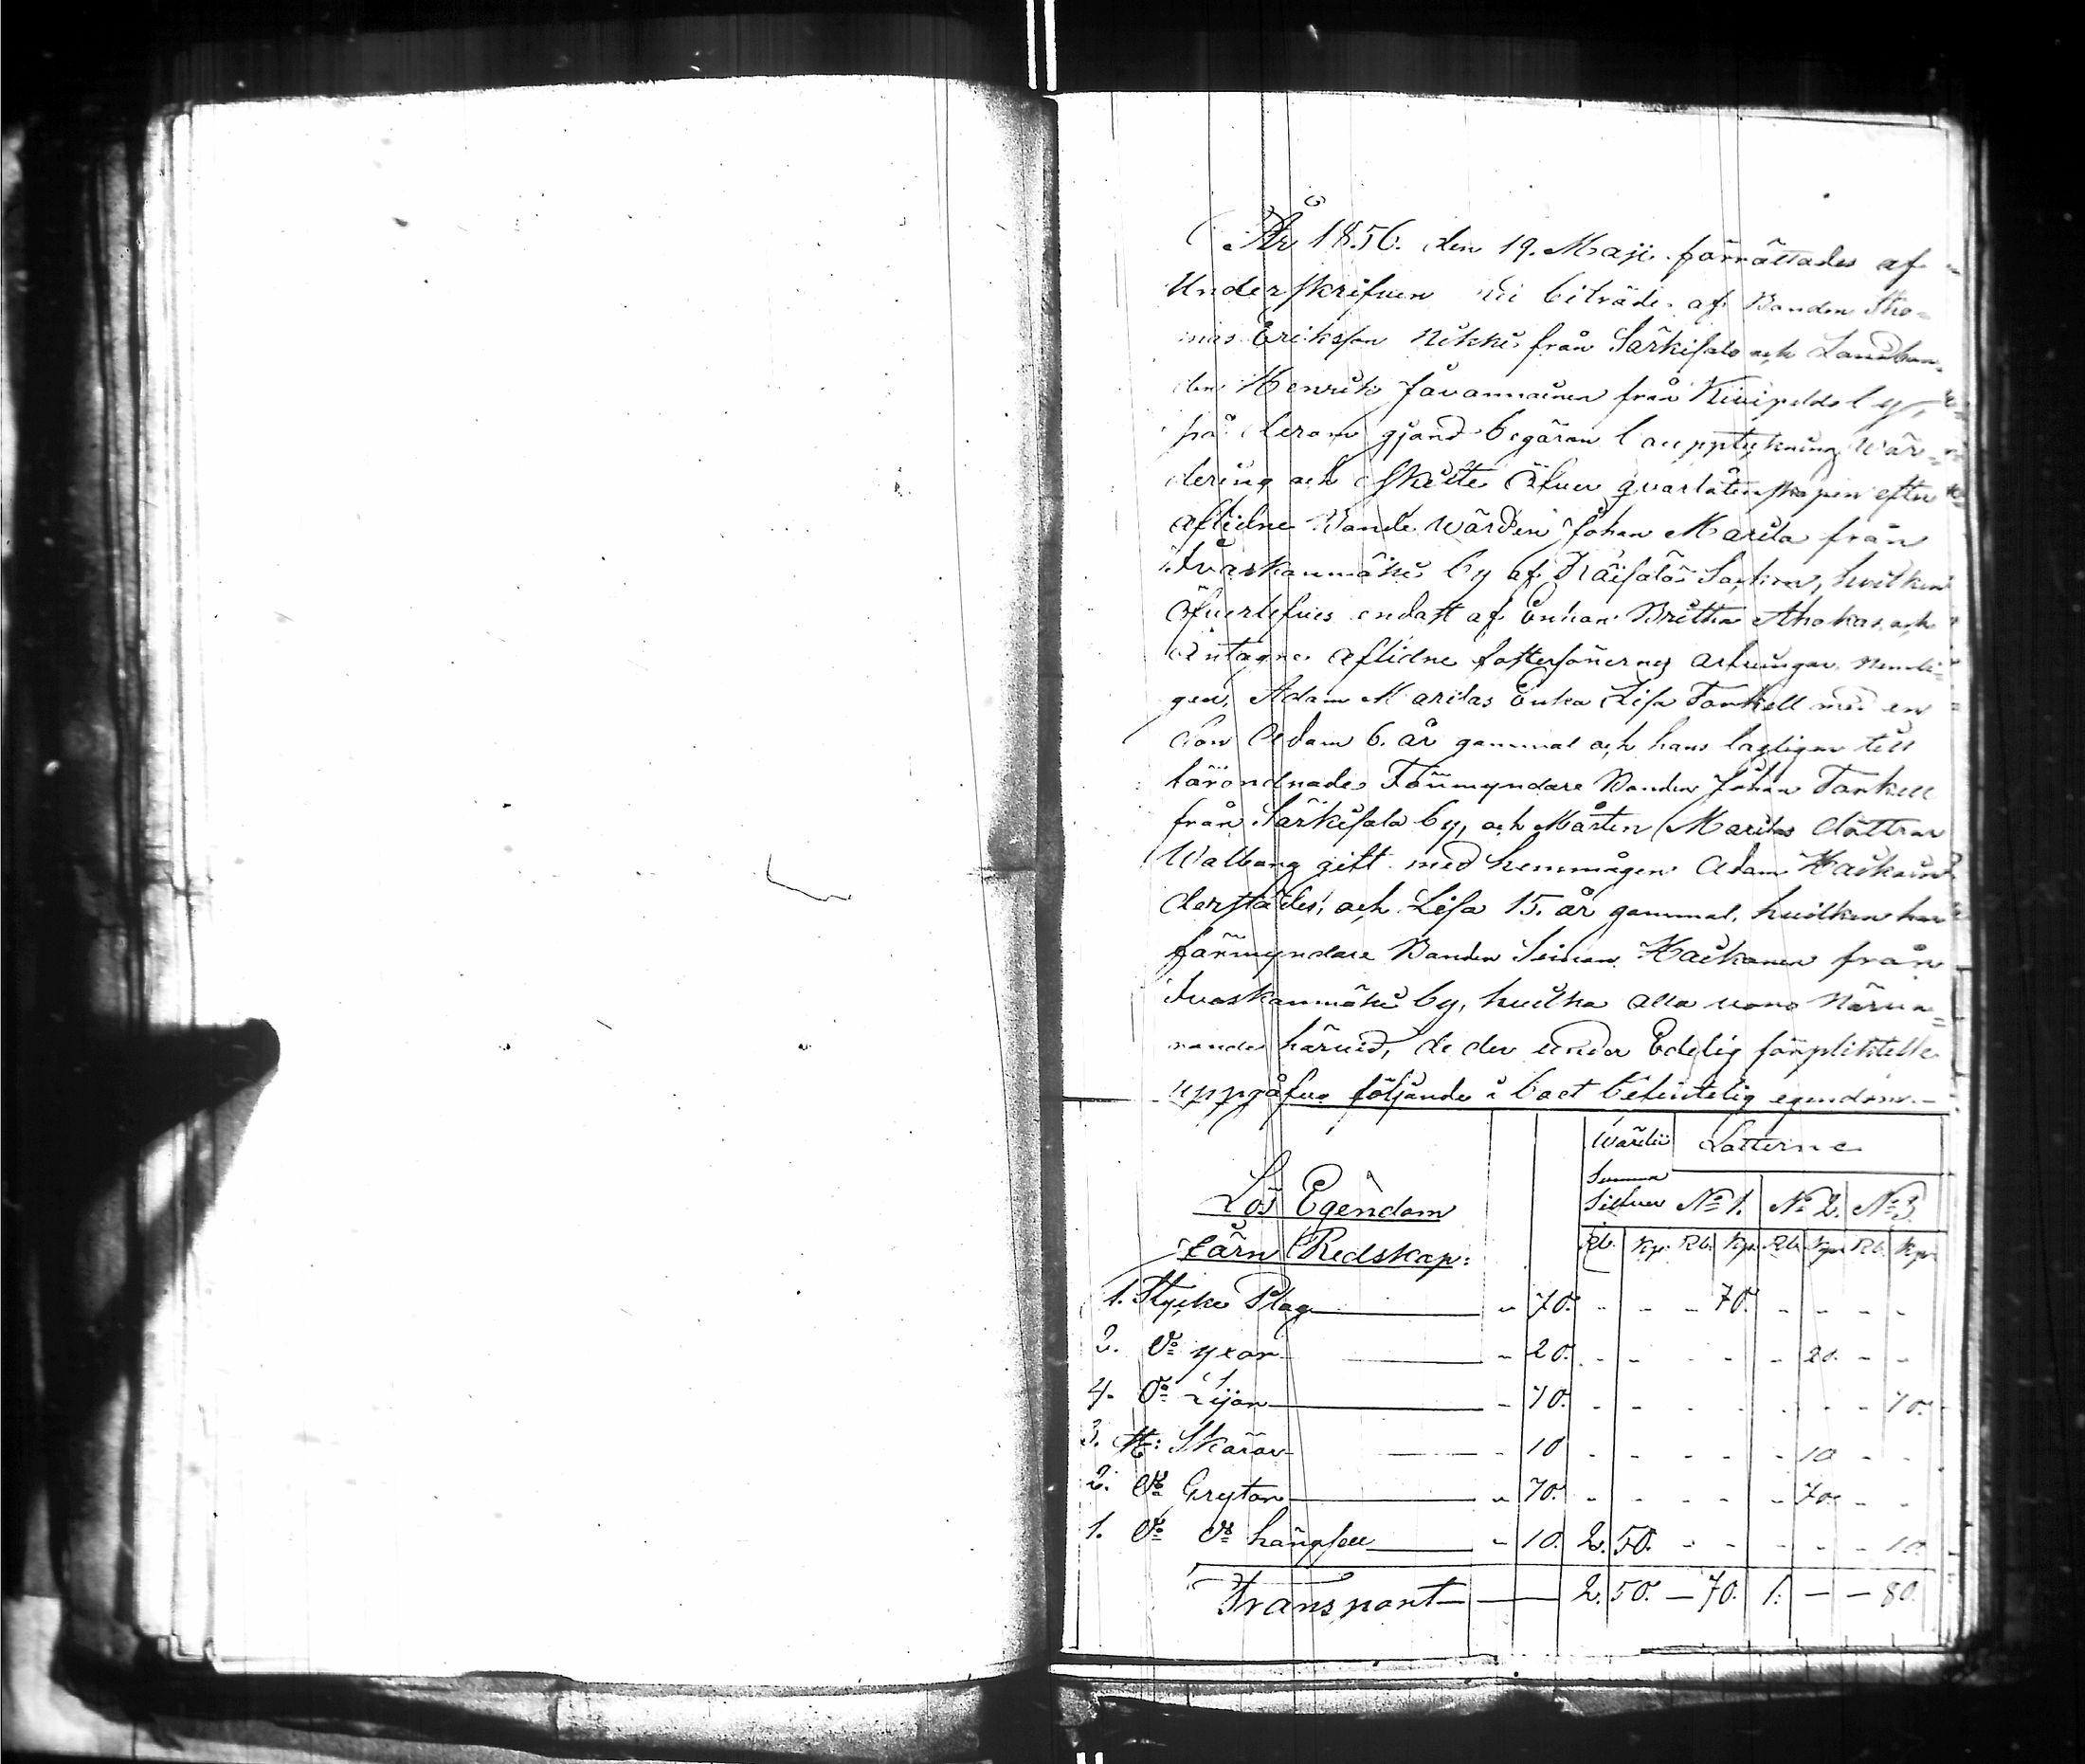 År 1856. den 19. Maji förrättades af
Underskrifven vid biträde af Bonden Tho-
mas Eriksson Nikki från Särkisalo och Landbon-
den Henrik Jävannainen från Kivipeldo by,
på derom gjord begäran l auppteckning wär-
dering och skifte öfver qvarlåtenskapen efter
aflidne Bonde wärden Johan Marila från
Ivaskanmäki by af Räisälä Sochn, hvilken
öfverlefves endast af Enkan Britha Ahokas och
intagne aflidne fostersönernes arfvingar nemli-
gen, Adam Marilas Enka Lisa Tankell med en
son Adam 6. år gammal och hans lagligen till
förordnade Förmyndare Bonden Johan Tankell
från Särkisalo by, och Mårten Marilas döttrar
Walborg gift med hemmågen Adam Kaikain
derstädes, och Lisa 15. år gammal, hvilken har
förmyndare Bonden Simon Kaikanen från
Ivaskanmäki by, hvilka alla voro närva-
rande härvid, de der under Edelig förpliktelse
uppgåfvo följande i boet befintelig egendom.-
Wärdii Lotterne
Summa
Silfver No 1. No 2. No 3.
Lös Egendom
Rb. Kp. Rb. Kp. Rb. Kp. Rb. Kp.
Järn Redskap:
1. Stycke Plog - 70. - - - 70. - - - -
2. Do yxor - 20. - - - - - 20. - -
4. Do Lijor - 70. - - - - - - - 70.
3. St: Skäror - 10 - - - - - 10 - -
2. Do Grytor - 70. - - - - - 70. - -
1. Do Do hängsell - 10. 2. 50. - - - - - 10.
Transport 2. 50. - 70. 1. - - 80.